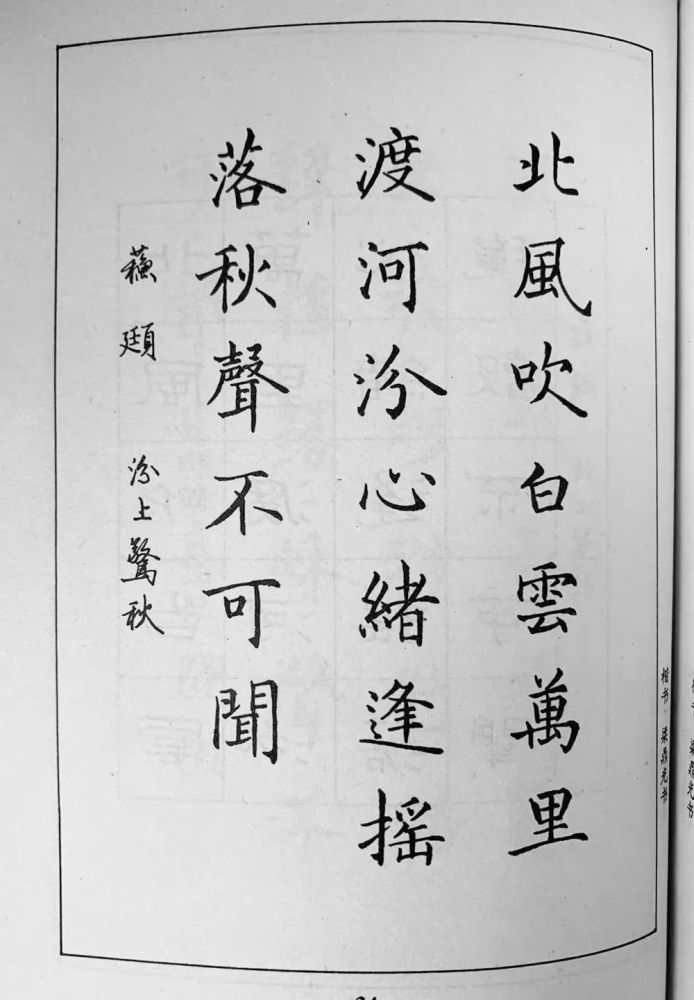 北風吹白雲萬里
渡河汾心緒逢摇
落秋聲不可聞
蘓頲
汾上驚秋
楷书·梁鼎光书